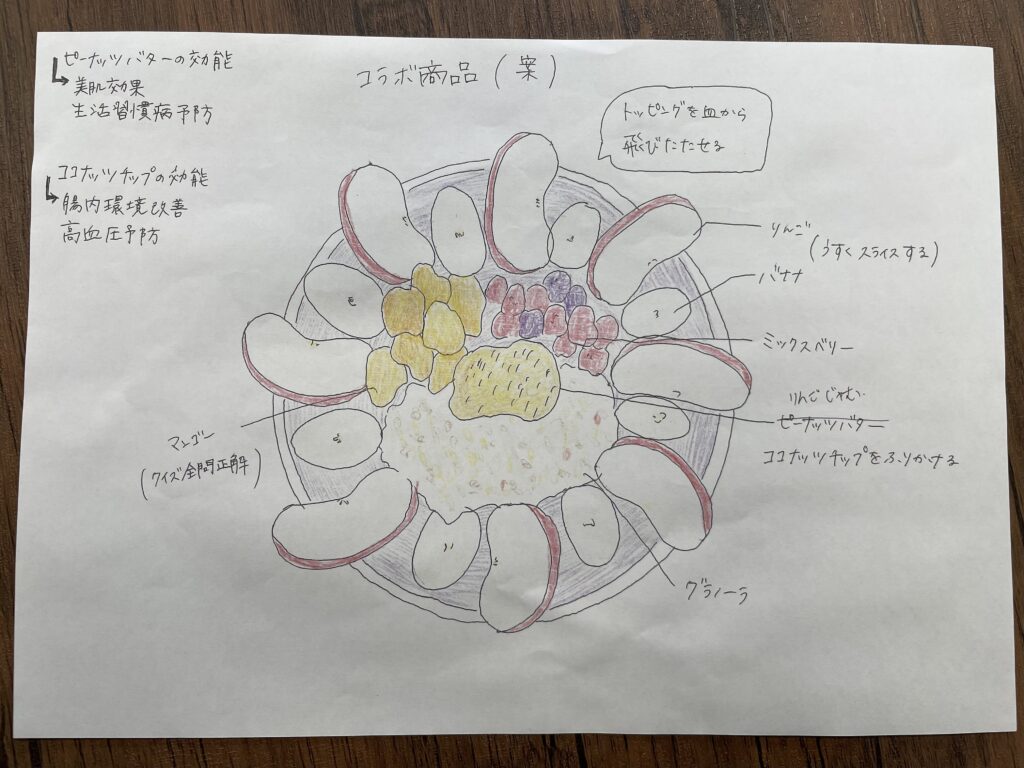 ピーナッツバターの効能
美肌効果
生活習慣病予防
ココナッツチップの効能
腸内環境改善
高血圧予防
コラボ商品(案)
トッピングを皿から
飛びたたせる
りんご
(うすくスライスする)
バナナ
ミックスベリー
りんごじゃむ
ピーナッツバター
ココナッツチップをふりかける
マンゴー
(クイズ全問正解)
グラノーラ